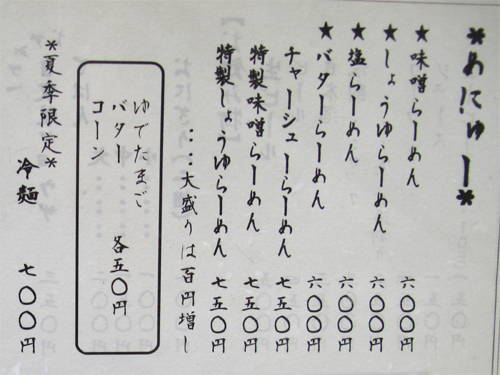 *めにゅー*
★味噌らーめん 六〇〇円
★しょうゆらーめん 六〇〇円
★塩らーめん 六〇〇円
★バターらーめん 六〇〇円
チャーシューらーめん 七五〇円
特製味噌らーめん 七五〇円
特製しょうゆらーめん 七五〇円
‥‥大盛りは百円増し
ゆでたまご
バター 各五〇円
コーン
*夏季限定*
冷麺 七〇〇円